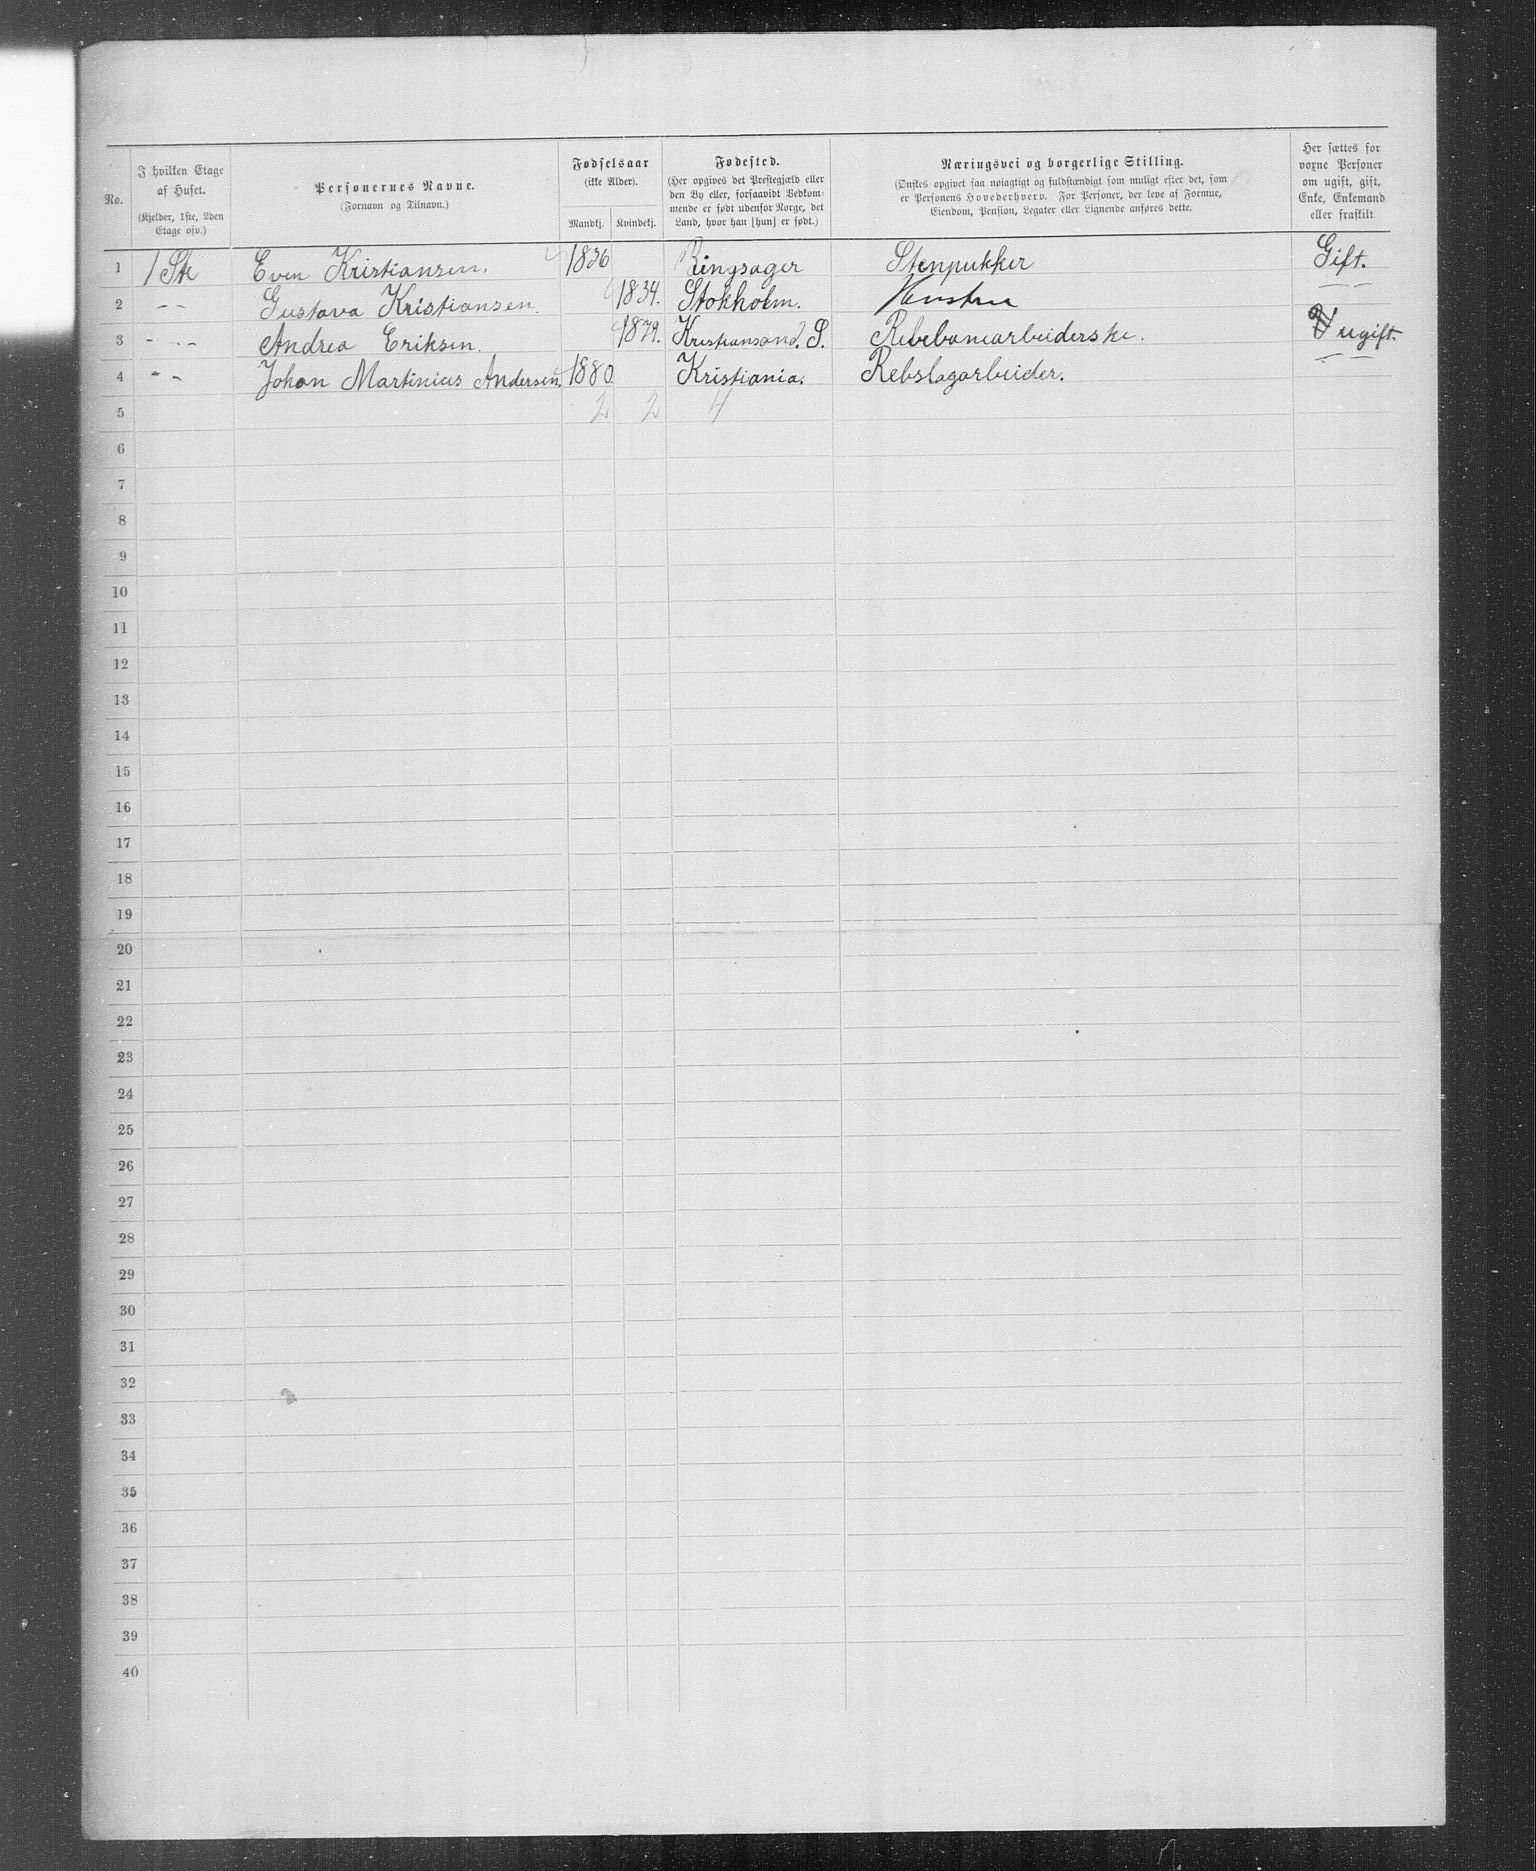 No.
I hvilken Etage af Huset.
(Kjelder, 1ste, 2den Etage osv.)
Personernes Navne.
(Fornavn og Tilnavn.)
Fødselsaar
(ikke Alder).
Mandkj. Kvindekj.
Fødested.
(Her opgives det Prestegjæld eller
den By eller, forsaavidt Vedkom-
mende er født udenfor Norge, det
Land, hvor han [hun] er født.)
Næringsvei og borgerlige Stilling.
(Ønskes opgivet saa nøiagtigt og fuldstændigt som muligt efter det, som
er Personens Hovederhverv. For Personer, der leve af Formue,
Eiendom, Pension, Legater eller Lignende anføres dette.
Her sættes for
voxne Personer
om ugift, gift,
Enke, Enkemand
eller fraskilt
1 1 Ste Even Kristiansen. 1836 Ringsager Stenpukker Gift.
2 - - Gustava Kristiansen. 1834. Stokholm. Hustru - -
3 - - - Andrea Eriksen. 1879. Kristiansand. S. Rebebanearbeiderske. ugift.
4 - - Johan Martinius Andersen, 1880 Kristiania. Rebslagarbeider. - -
5 2 2 4
6
7
8
9
10
11
12
13
14
15
16
17
18
19
20
21
22
23
24
25
26
27
28
29
30
31
32
33
34
35
36
37
38
39
40